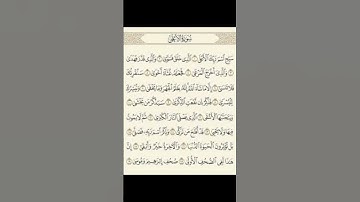 سورة الأعلى
سبح اسم ربك الأعلى ١ الذي خلق فسوى ٢ والذي قدر فهدى
٣ والذي أخرج المرعى ٤ فجعله غثاء أحوى ٥ سنقرئك
فلا تنسى ٦ إلا ما شاء الله إنه يعلم الجهر وما يخفى ٧ ونيسرك
لليسرى ٨ فذكر إن نفعت الذكرى ٩ سيذكر من يخشى ١٠
ويتجنبها الأشقى ١١ الذي يصلى النار الكبرى ١٢ ثم لا يموت
فيها ولا يحيى ١٣ قد أفلح من تزكى ١٤ وذكر اسم ربه فصلى ١٥
بل تؤثرون الحياة الدنيا ١٦ والآخرة خير وأبقى ١٧ إن
هذا لفي الصحف الأولى ١٨ صحف إبراهيم وموسى ١٩